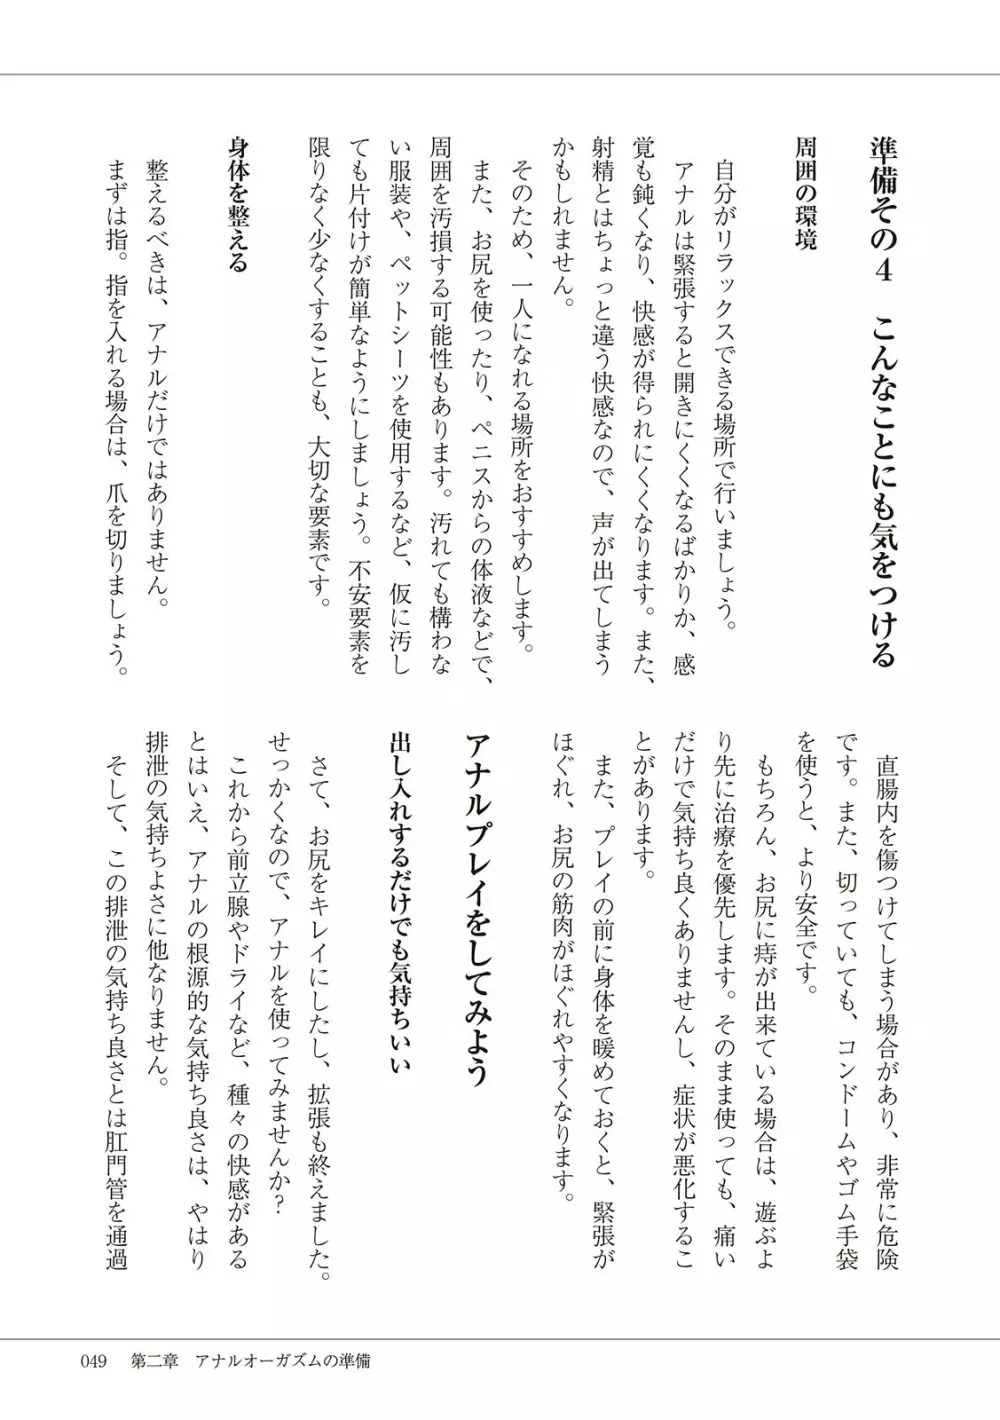 準備その4　こんなことにも気をつける
周囲の環境
自分がリラックスできる場所で行いましょう。
アナルは緊張すると開きにくくなるばかりか、感
覚も鈍くなり、快感が得られにくくなります。また、
射精とはちょっと違う快感なので、声が出てしまう
かもしれません。
そのため、一人になれる場所をおすすめします。
また、お尻を使ったり、ペニスからの体液などで、
周囲を汚損する可能性もあります。汚れても構わな
い服装や、ペットシーツを使用するなど、仮に汚し
ても片付けが簡単なようにしましょう。不安要素を
限りなく少なくすることも、大切な要素です。
身体を整える
整えるべきは、アナルだけではありません。
まずは指。指を入れる場合は、爪を切りましょう。
直腸内を傷つけてしまう場合があり、非常に危険
です。また、切っていても、コンドームやゴム手袋
を使うと、より安全です。
もちろん、お尻に痔が出来ている場合は、遊ぶよ
り先に治療を優先します。そのまま使っても、痛い
だけで気持ち良くありませんし、症状が悪化するこ
とがあります。
また、プレイの前に身体を暖めておくと、緊張が
ほぐれ、お尻の筋肉がほぐれやすくなります。
アナルプレイをしてみよう
出し入れするだけでも気持ちいい
さて、お尻をキレイにしたし、拡張も終えました。
せっかくなので、アナルを使ってみませんか?
これから前立腺やドライなど、種々の快感がある
とはいえ、アナルの根源的な気持ち良さは、やはり
排泄の気持ちよさに他なりません。
そして、この排泄の気持ち良さとは肛門管を通過
049　第二章　アナルオーガズムの準備